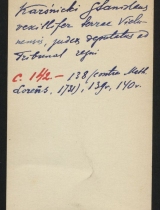 Karśnicki Stanislaus
vexillifer terrae Vielu-
nensis, judex deputatus ad
Tribunal regni
C. 142 – 138 (contra Math.
Loreńs, 1731), 139v, 140v.